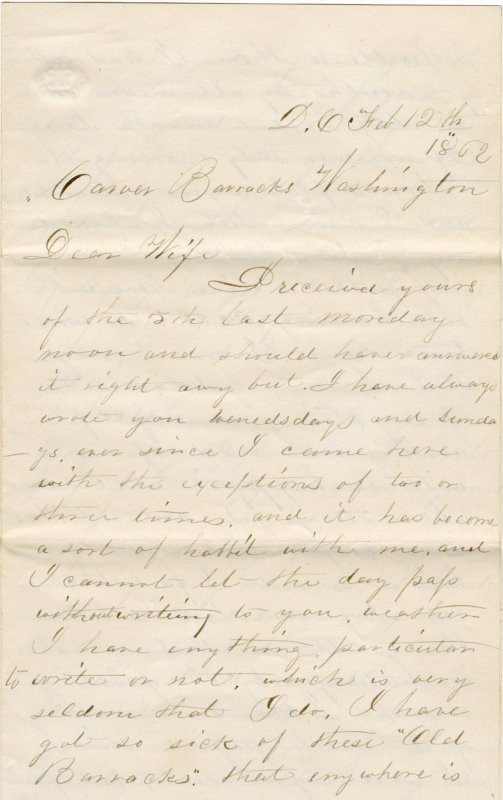 D. C Feb 12th
1862
" Carver Barracks Washington
Dear Wife
I received yours
of the 5th last monday
noon and should have answered
it right awy but. I have always
wrote you wenedsdays and sunda
-ys. ever since I came here
with the exceptions of too or
three times. and it has become
a sort of habbit with me. and
I cannot let the day pass
without writing to you. weather
I have anything particular
to write or not. which is very
seldom that I do. I have
got so sick of these "Old
Barracks". that anywhere is